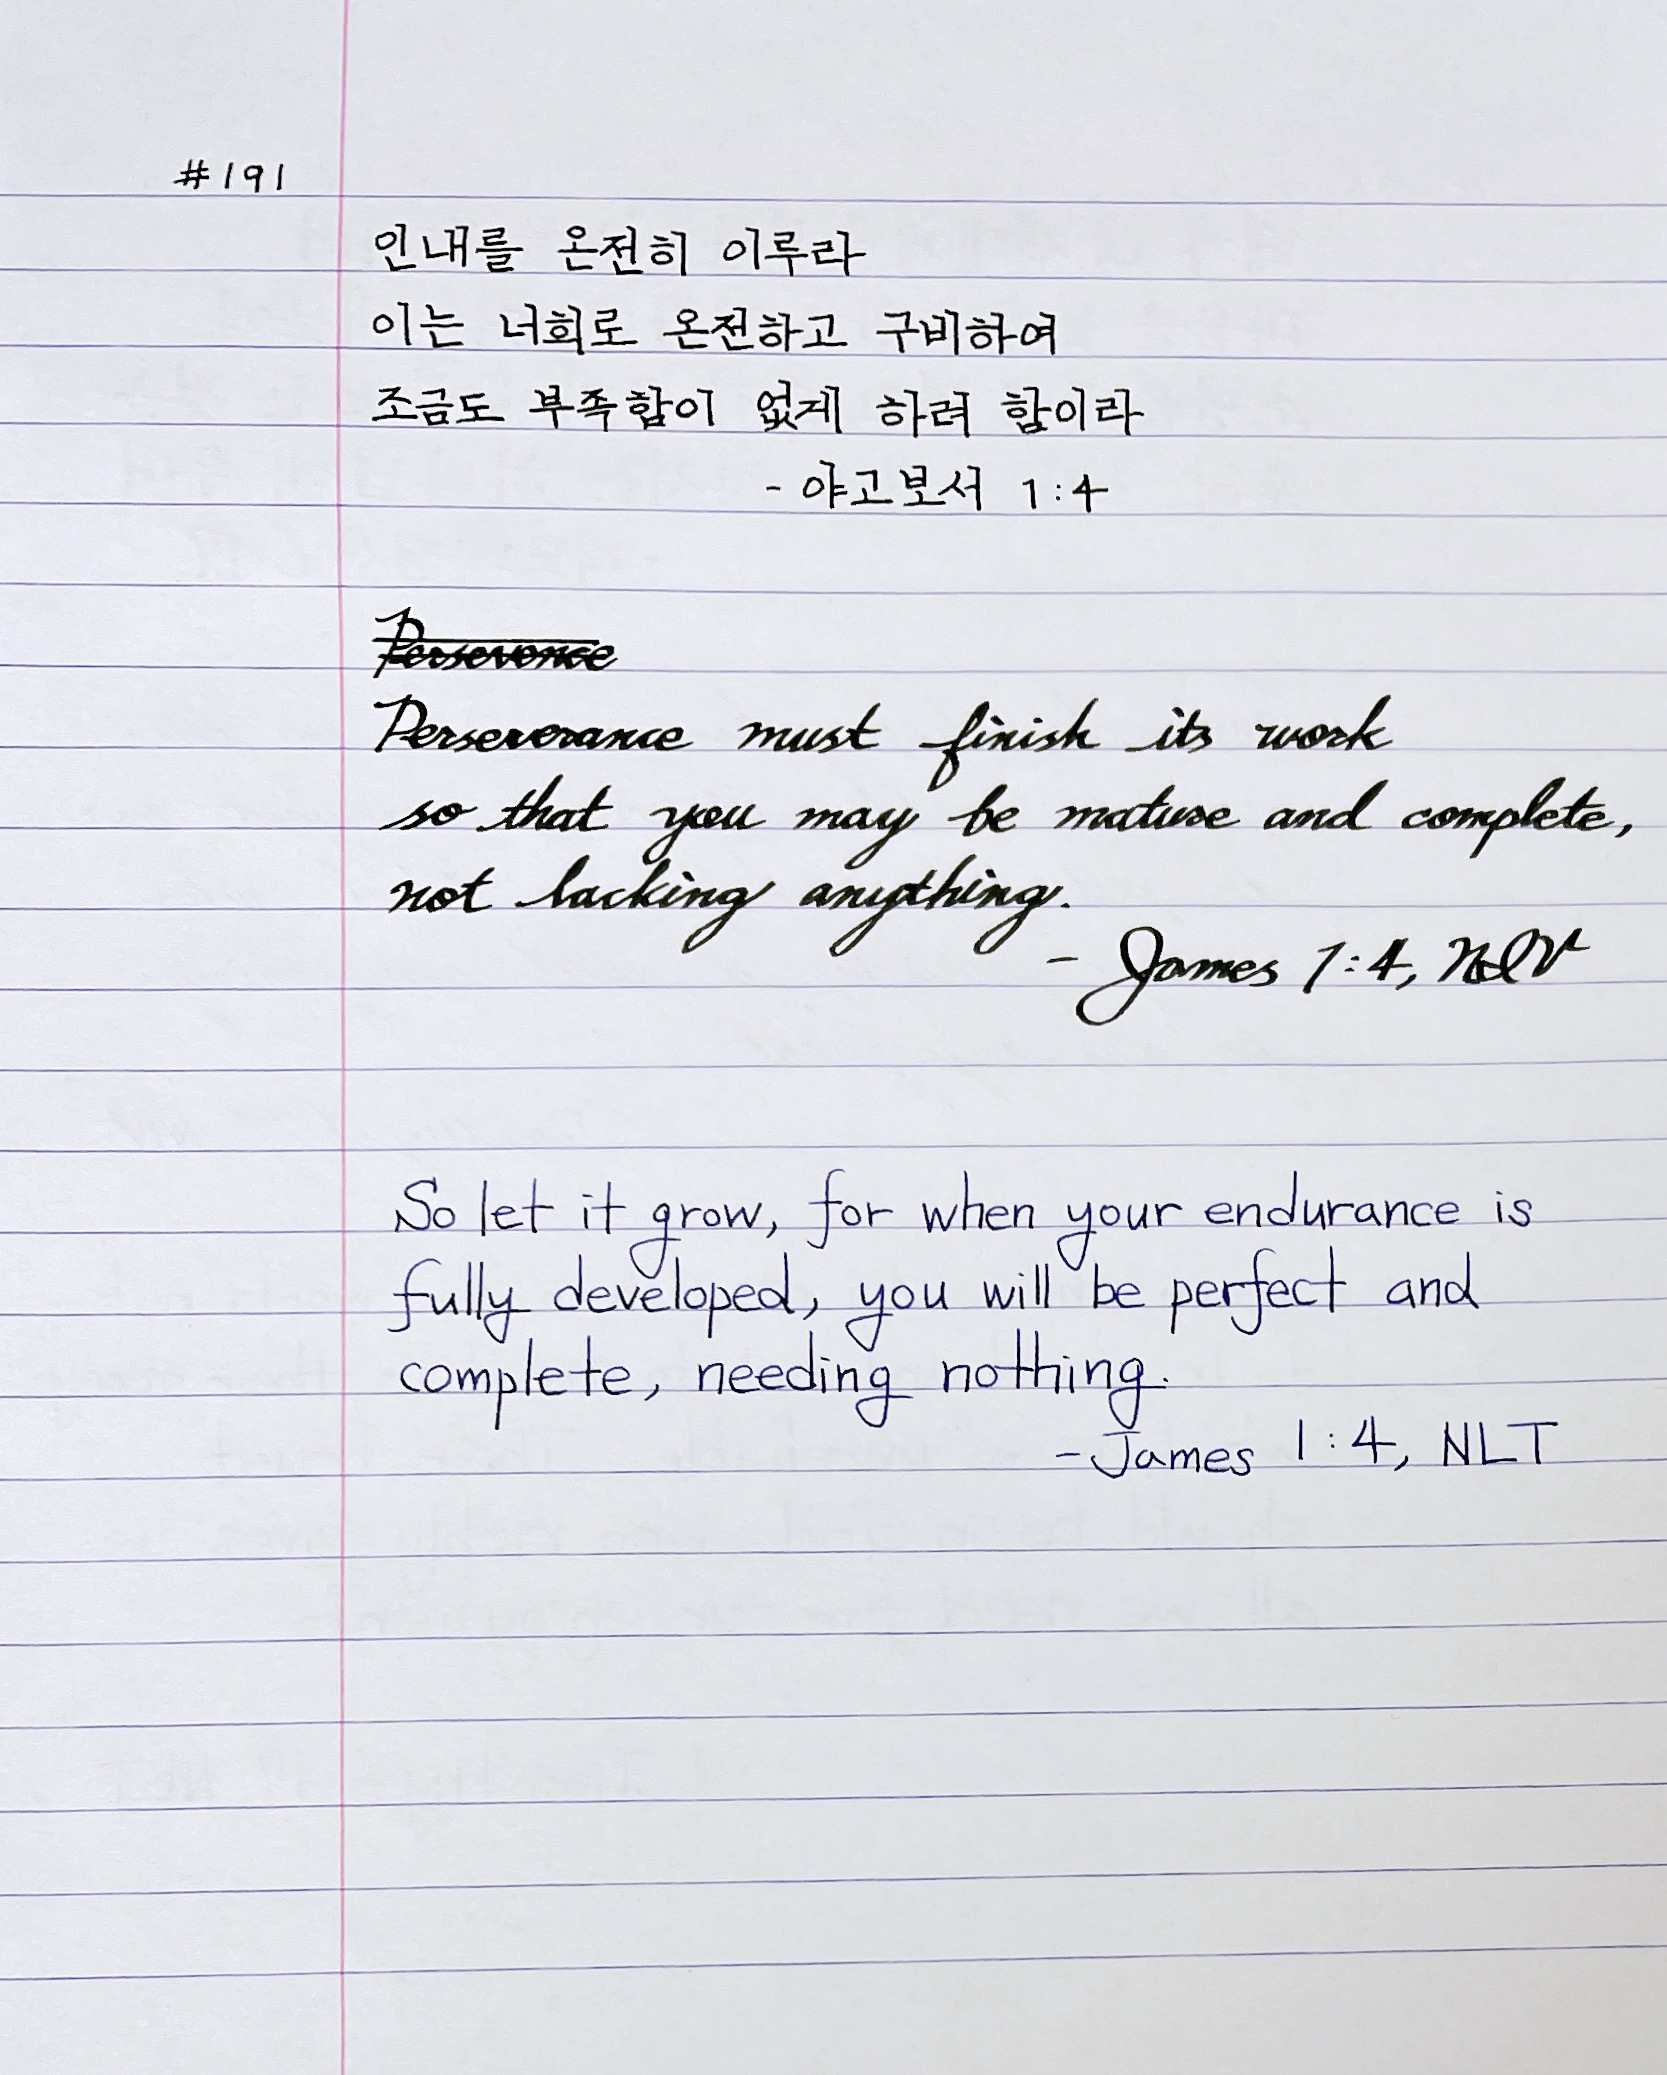 #191
인내를 온전히 이루라
이는 너희로 온전하고 구비하여
조금도 부족함이 없게 하려 함이라
- 야고보서 1:4
Perseverance must finish its work
so that you may be mature and complete,
not lacking anything.
- James 1:4, NIV
So let it grow, for when your endurance is
fully developed, you will be perfect and
complete, needing nothing.
- James 1:4, NLT